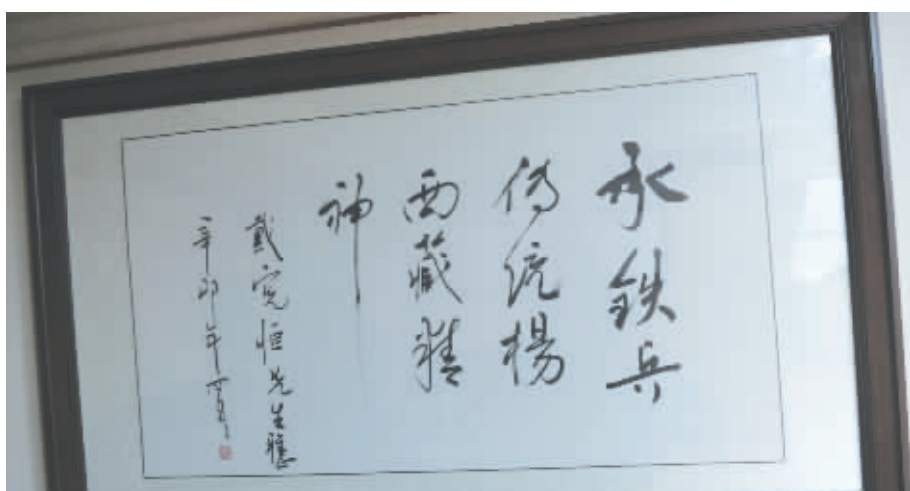 承铁兵
传统楊
西藏精
神
戴宽恒先生雅
辛卯年